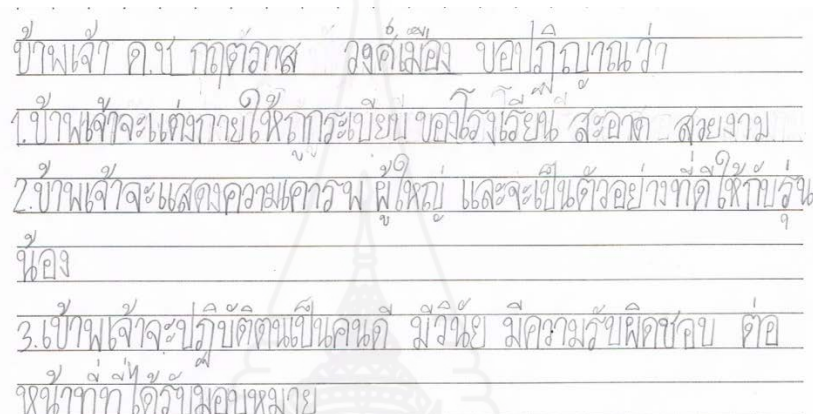 ข้าพเจ้า ด.ช กฤตภาส วงค์เมือง ขอปฏิญาณว่า
1.ข้าพเจ้าจะแต่งกายให้ถูกระเบียบของโรงเรียน สะอาด สวยงาม
2.ข้าพเจ้าจะแสดงความเคารพ ผู้ใหญ่ และจะเป็นตัวอย่างที่ดีให้กับรุ่น
น้อง
3.ข้าพเจ้าจะปฏิบัติตนเป็นคนดี มีวินัย มีความรับผิดชอบ ต่อ
หน้าที่ที่ได้รับมอบหมาย